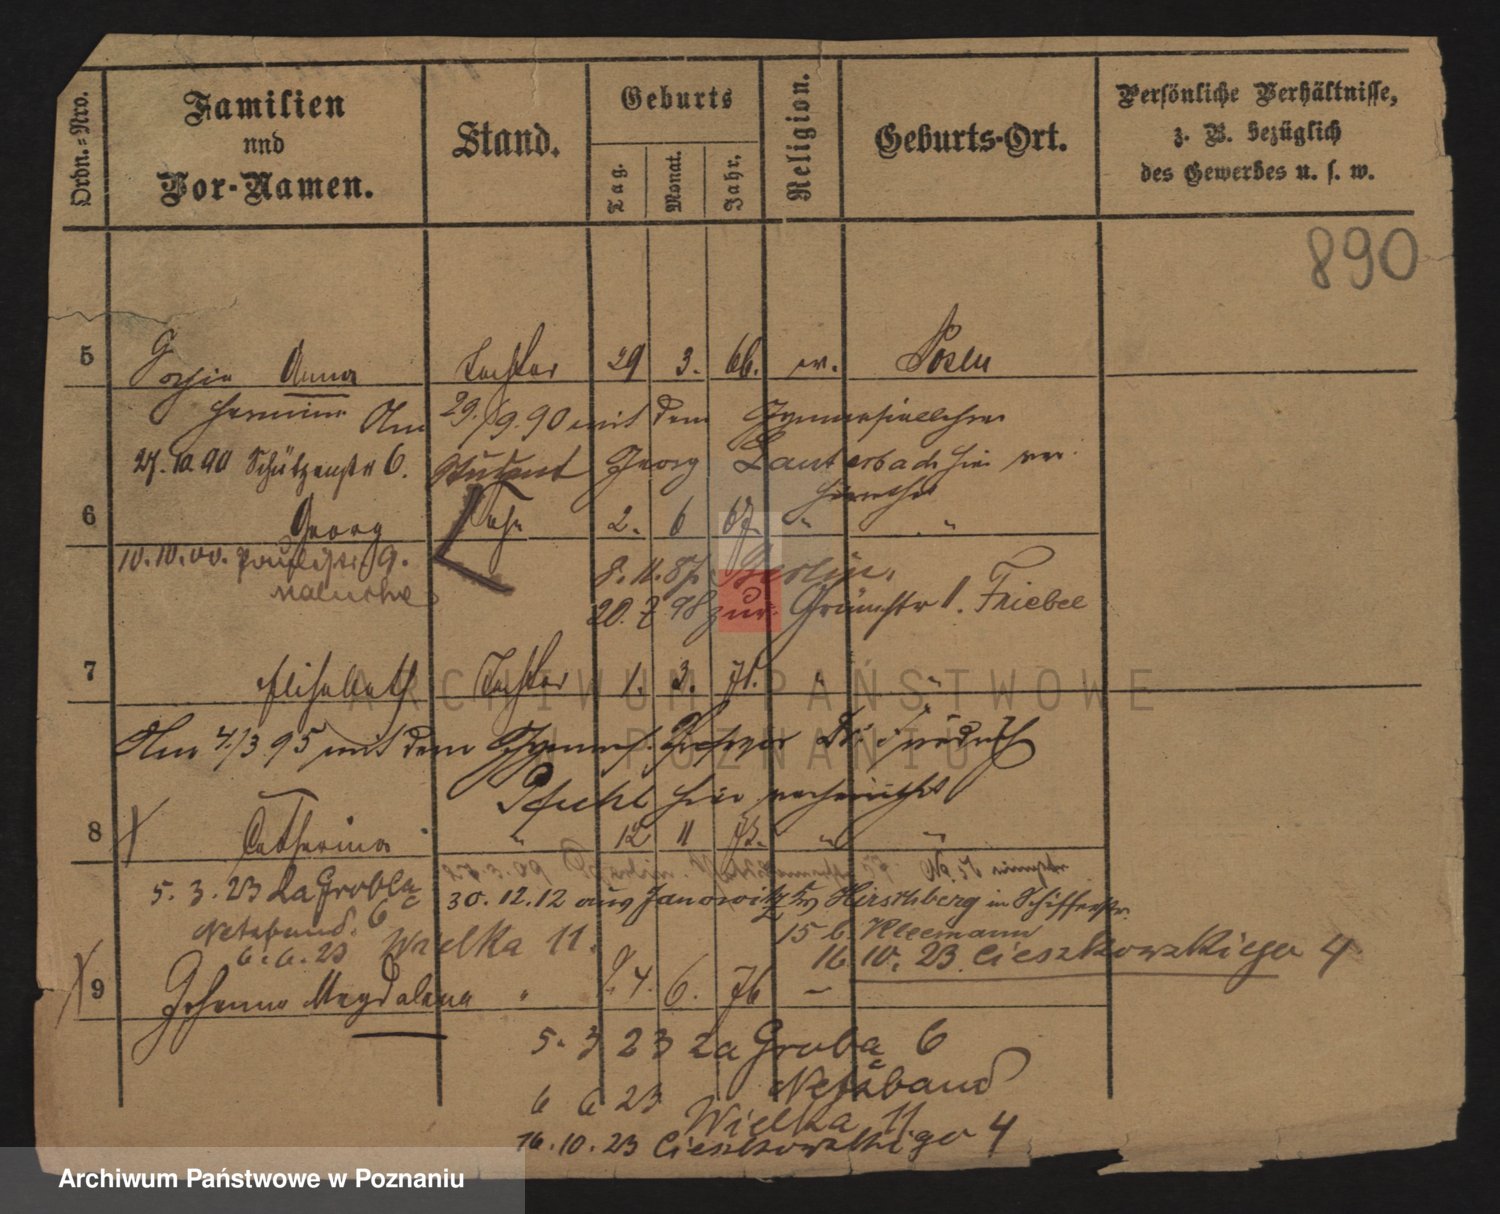 Ordn.=Nro.
Familien
und
Vor-Namen.
Stand.
Geburts
Tag.
Monat.
Jahr.
Religion.
Geburts-Ort.
Persönliche Verhältnisse,
z. B. bezüglich
des Gewerbes u. s. w.
890
5 Sophie Anna Tochter 29 3. 66. ev. Posen
Hermine Am 29./9.90 mit dem Gymnasiallehrer
27.10.90 Schützenstr 6. Georg Lauterbach hier ver
heirathet
6 Georg Sohn 2. 6 67. " "
10.10.00. Paulistr. 9.
8.11.87. Berlin.
20.7 98 zur. Grünstr 1. Friebel
7 Elisabeth Tochter 1. 3. 71. " "
Am 4./3 95 mit dem Gymnas. Professor Dr. Friedrich
Pfuhl hier verheirathet
8 Catharina " 12 11 73. " "
5. 3. 23 Za Groblą 6
Netzband.
30.12.12 aus Janowitz Hirschberg in Schifferstr.
15 6 Kleemann
6. 6. 23 Wielka 11.
16 10. 23 Cieszkowskiego 4
9 Johanna Magdalena " 4. 6. 76
5. 3 23 Za Groblą 6
Netzband
6 6 23 Wielka 11
16.10.23 Cieszkowskiego 4
ARCHIWUM PAŃSTWOWE
W POZNANIU
Archiwum Państwowe w Poznaniu